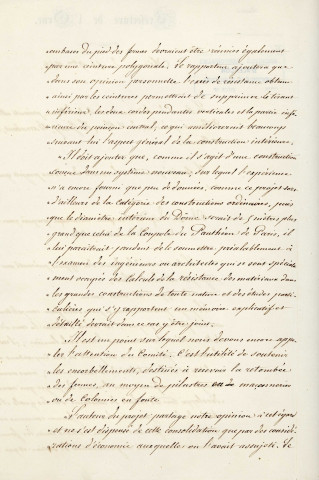 embases du pied des fermes devraient être réunies également
par une ceinture polygonale. Le rapporteur ajoutera que
dans son opinion personnelle l'excès de résistance obtenu
ainsi par les ceintures permettrait de supprimer le tirant
inférieur, les deux cordes pendantes verticales et la partie infé-
rieure du poinçon central, ce qui améliorerait beaucoup
suivant lui l'aspect général de la construction intérieure.
Il doit ajouter que, comme il s'agit d'une construction
conçue dans un système nouveau, sur lequel l'expérience
n'a encore fourni que peu de données, comme ce projet sort
d'ailleurs de la catégorie des constructions ordinaires, puis
que le diamètre intérieur du Dôme serait de 5 mètres plus
grand que celui de la Coupole du Panthéon de Paris, il
lui paraîtrait prudent de le soumettre préalablement à
l'examen des ingénieurs ou architectes qui se sont spéciale-
ment occupés des calculs de la résistance des matériaux dans
les grandes constructions de toute nature et des études parti-
culières qui s'y rapportent, un mémoire explicatif et
détaillé devrait dans ce cas y être joint.
Il est un point sur lequel nous devons encore appe-
ler l'attention du Comité. C'est l'utilité de soutenir
les encorbellements, destinés à recevoir la retombée
des fermes, au moyen de pilastres en maçonnerie
ou de Colonnes en fonte.
L'auteur du projet partage notre opinion à cet égard
et ne s'est dispensé de cette consolidation que par des considé-
rations d'économie auxquelles on l'avait assujeti. Le